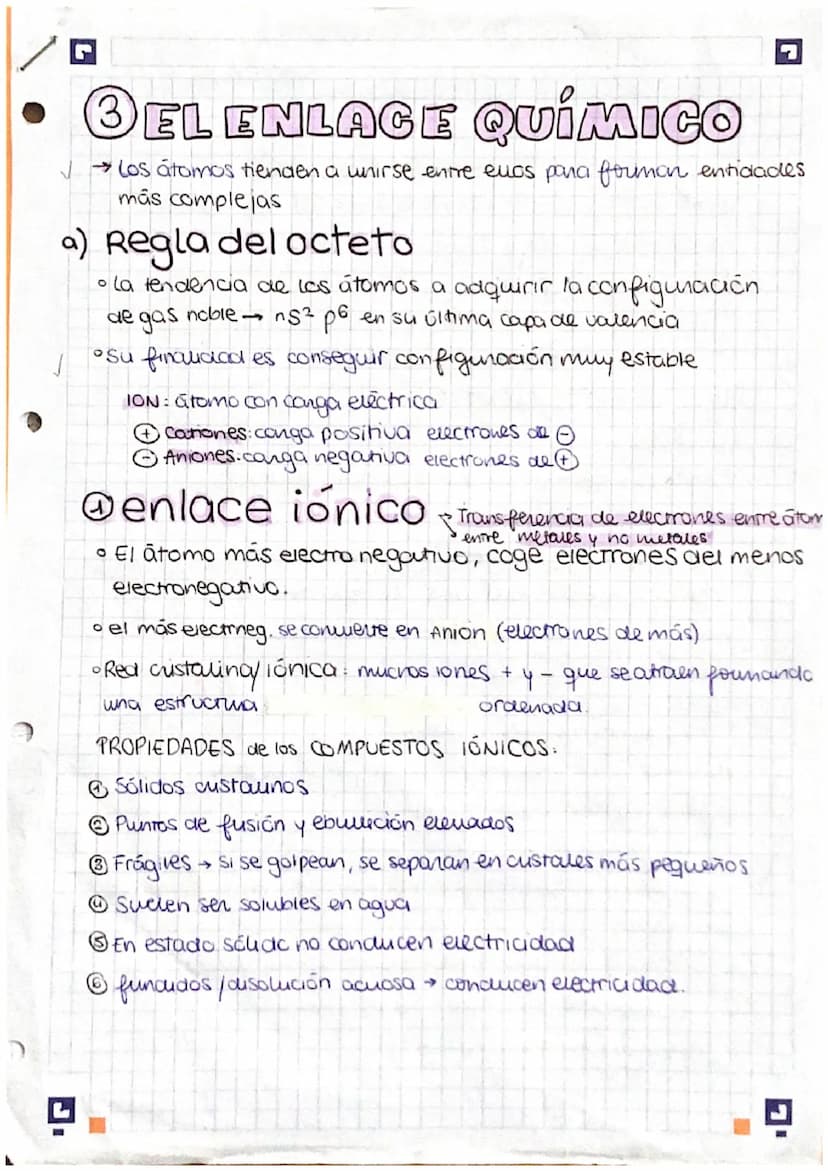 ③ EL ENLACE QUÍMICO
→ Los átomos tienden a unirse entre ellos para formar entidades
más complejas
a) Regla del octeto
• La tendencia de los átomos a adquirir la configuración
de gas noble → ns² p⁶ en su última capa de valencia
• Su finalidad es conseguir configuración muy estable
ION: átomo con carga eléctrica
⊕ Cationes: carga positiva electrones de ⊖
⊖ Aniones: carga negativa electrones de ⊕
① enlace iónico → Transferencia de electrones entre átom
entre metales y no metales
• El átomo más electronegativo, coge electrones del menos
electronegativo.
• el más electrneg. se convierte en Anión (electrones de más)
• Red cristalina/iónica: muchos iones + y - que se atraen formando
una estructura ordenada.
PROPIEDADES de los COMPUESTOS IÓNICOS:
① Sólidos cristalinos
② Puntos de fusión y ebullición elevados
③ Frágiles → si se golpean, se separan en cristales más pequeños
④ Suelen ser solubles en agua
⑤ En estado sólido no conducen electricidad
⑥ fundidos / disolución acuosa → conducen electricidad.